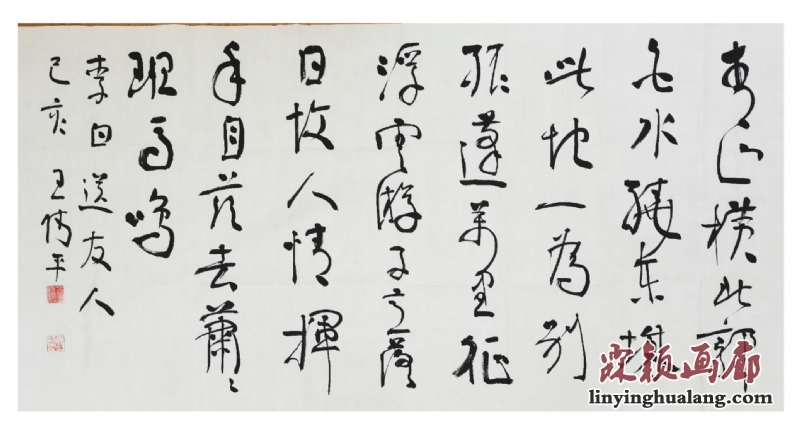 青山横北郭
白水繞東城
此地一為别
孤蓬萬里征
浮雲游子意落
日故人情揮
手自茲去蕭〻
班馬鳴
李白送友人
己亥 王 平
颖画廊
linyinghualang.com